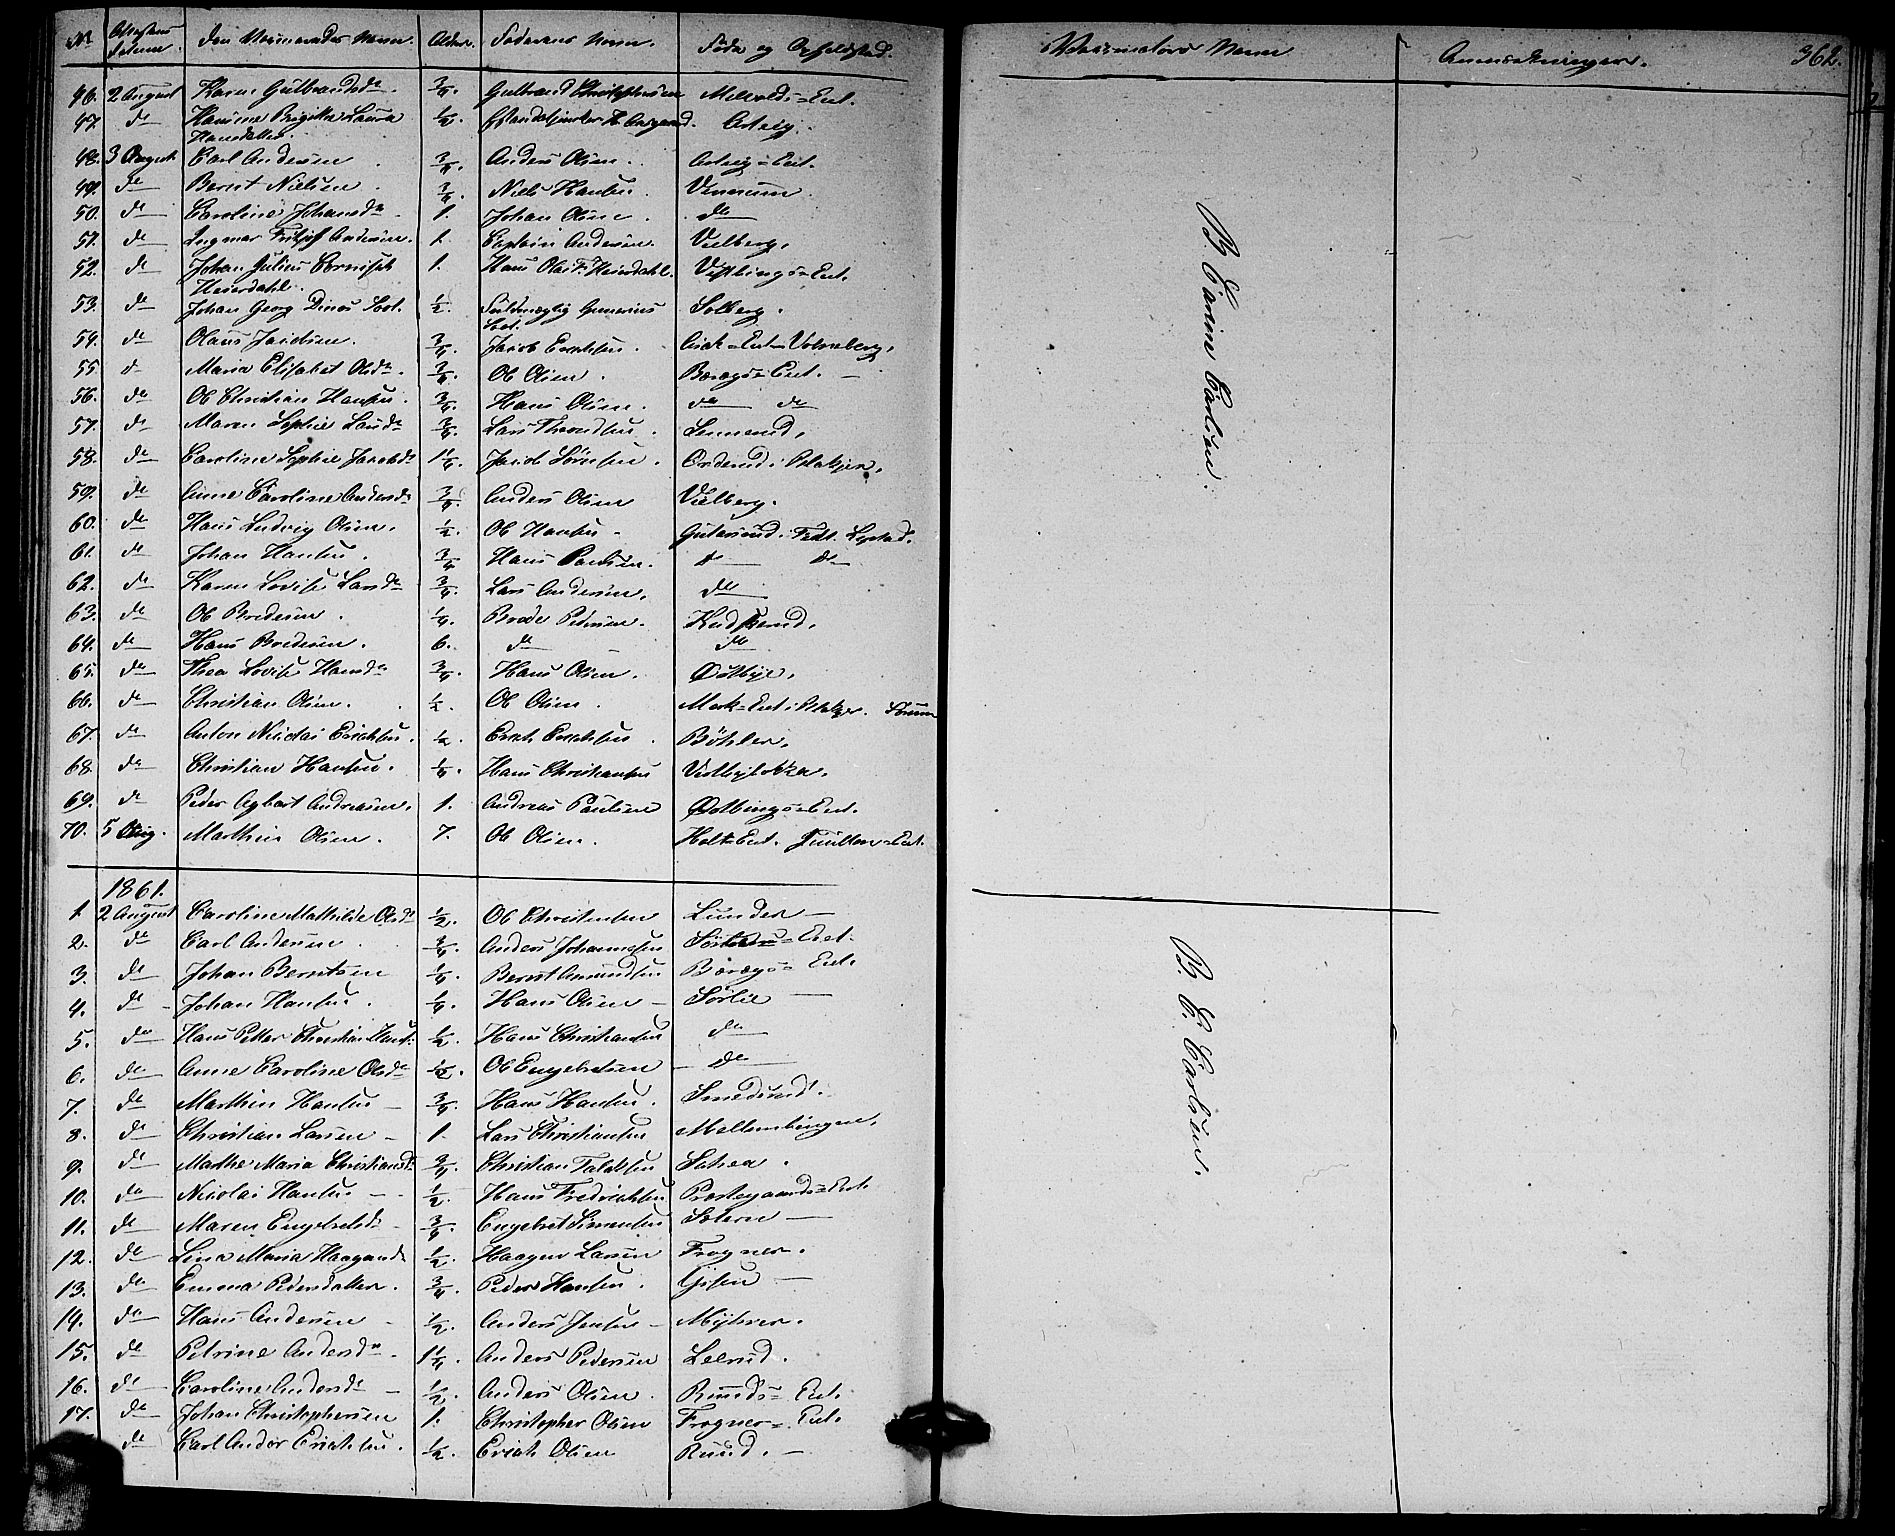 No. Attestens Datum. Den Vaccineredes Navn. Alder. Faderens Navn. Føde og Opholdssted.
46. 2 August Karen Gulbrandsdr. 3/4. Gulbrand Christophersen Melvolds=Eiet.
47. do Hansine Birgitte Laura 1/2. H. Aasgaard. Asteig.
Hansdatter.
48. 3 August Carl Andersen 3/4. Anders Olsen. Asteig=Eiet.
49. do Bernt Nielsen 3/4. Niels Hansen. Vennum
50. do Caroline Johansdr 1. Johan Olsen. do
51. do Ingmar Fritjof Andersen. 1. Captain Andersen. Vielberg.
52. do Johan Julius Cornisch 1. Hans Olai F. Heierdahl. Vestbings=Eiet.
Heierdahl.
53. do Johan Georg Dines Loot. 1/2. Gunerius Solberg.
Loot.
54. do Olaus Jacobsen. 3/4. Jacob Erichsen. Eiet
55 d Maria Elisabet Olsdr. 3/4. Ole Olsen. Borægs=Eiet.
56. do Ole Christian Hansen. 3/4. Hans Olsen. do do
57. do Maren Sophie Larsdr 3/4. Lars Throndsen.
58. do Caroline Sophie Jacobsdr 1 1/4. Jacob Sørensen. i Blakjer.
59. do Anne Caroline Andersdr 3/4. Anders Olsen Vielberg.
60. do Hans Ludvig Olsen. 1/2. Ole Hansen Guterud. Lystad.
61. do Johan Hansen. 3/4 Hans Paulsen. do do
62. do Karen Lovise Larsdr 3/4. Lars Andersen. do
63. do Ole Bredesen. 1/4. Brede Pedersen. Kudsrud.
64. do Hans Bredesen. 6. do do
65. do Thea Lovise Hansdr 3/4. Hans Olsen. Østbye.
66. do Christian Olsen. 1/2. Ole Olsen. Mork=Eiet i Blakjer. Sørum
67. do Anton Nicolai Erichsen. 1/2. Erich Erichsen. Bøhler.
68. do Christian Hansen. 1/4. Hans Christiansen Vestbyløkka.
69. do Peder Agbart Andreasen. 1. Andreas Paulsen Østbings=Eiet.
70. 5 Aug. Marthin Olsen. 7. Ole Olsen. Holt=Eiet.
1861.
1. 2 August Caroline Mathilde Olsdr 1/2. Ole Christensen Lunder
2. do Carl Andersen 3/4. Anders Johannesen =Eiet.
3. do Johan Berntsen 1/4. Bernt Amundsen Borægs=Eiet.
4. do Johan Hansen. 1/4. Hans Olsen Sørlie
5. do Hans Petter Christian Hans. 1/2. Hans Christiansen do
6. do Anne Caroline Olsdr 1/2. Ole Engebretsen do
7. do Marthin Hansen 3/4. Hans Hansen. Smedsrud.
8. do Christian Larsen 1. Lars Christiansen Mellembingen.
9. do Marthe Maria Christiansdr 3/4. Christian Falaksen
10. do Nicolai Hansen 1/2. Hans Fredrichsen Præstegaards=Eiet.
11. do Maren Engebretsdr 3/4. Engebret Simensen
12. do Lina Maria Haagensdr 1/2. Haagen Larsen Frogner.
13. do Emma Pedersdatter. 3/4. Peder Hansen.
14. do Hans Andersen 1/2. Anders Jensen Myhrer.
15. do Petrine Andersdr 1 1/4. Anders Pedersen Leirud.
16. do Caroline Andersdr 1/2. Anders Olsen. Ruuds=Eiet.
17. do Johan Christophersen 1. Christopher Olsen Frogner=Eiet.
do Carl Andor Erichsen. 1/2. Erich Olsen Ruud.
Vaccinatørs Navn Anmærkninger. 362.
B. Earine Carlsen.
B. E. Carlsen.